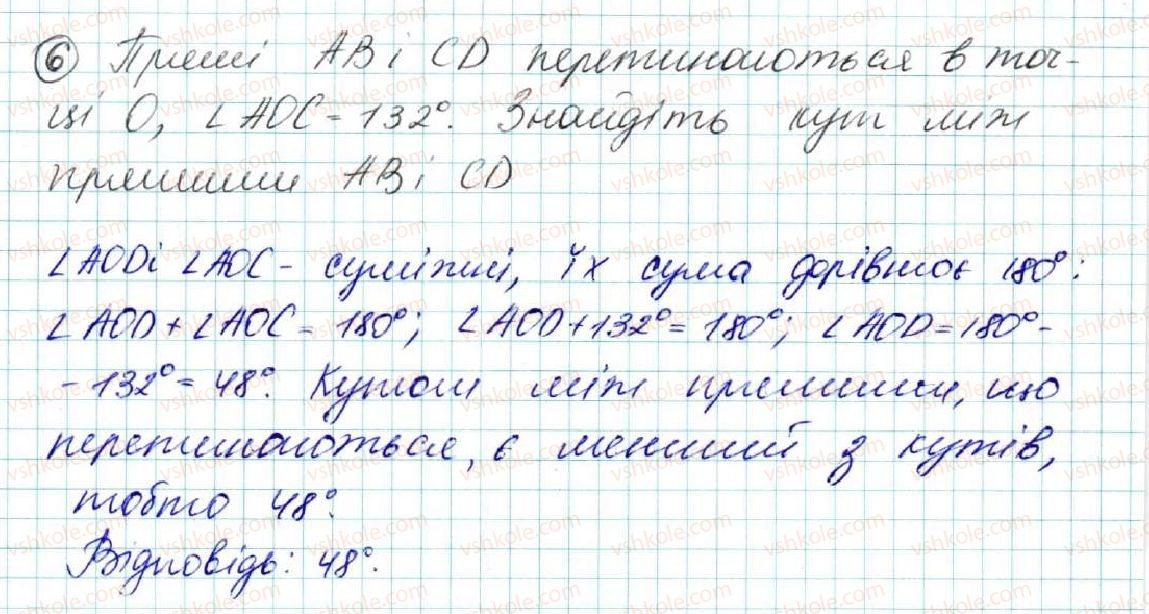 6 Прямі AB і CD перетинаються в точ-
ці O, ∠AOC = 132°. Знайдіть кут між
прямими AB і CD
∠AOD і ∠AOC - суміжні, їх сума дорівнює 180°:
∠AOD + ∠AOC = 180°; ∠AOD + 132° = 180°; ∠AOD = 180° -
- 132° = 48°. Кутом між прямими, що
перетинаються, є менший з кутів,
тобто 48°.
Відповідь: 48°.